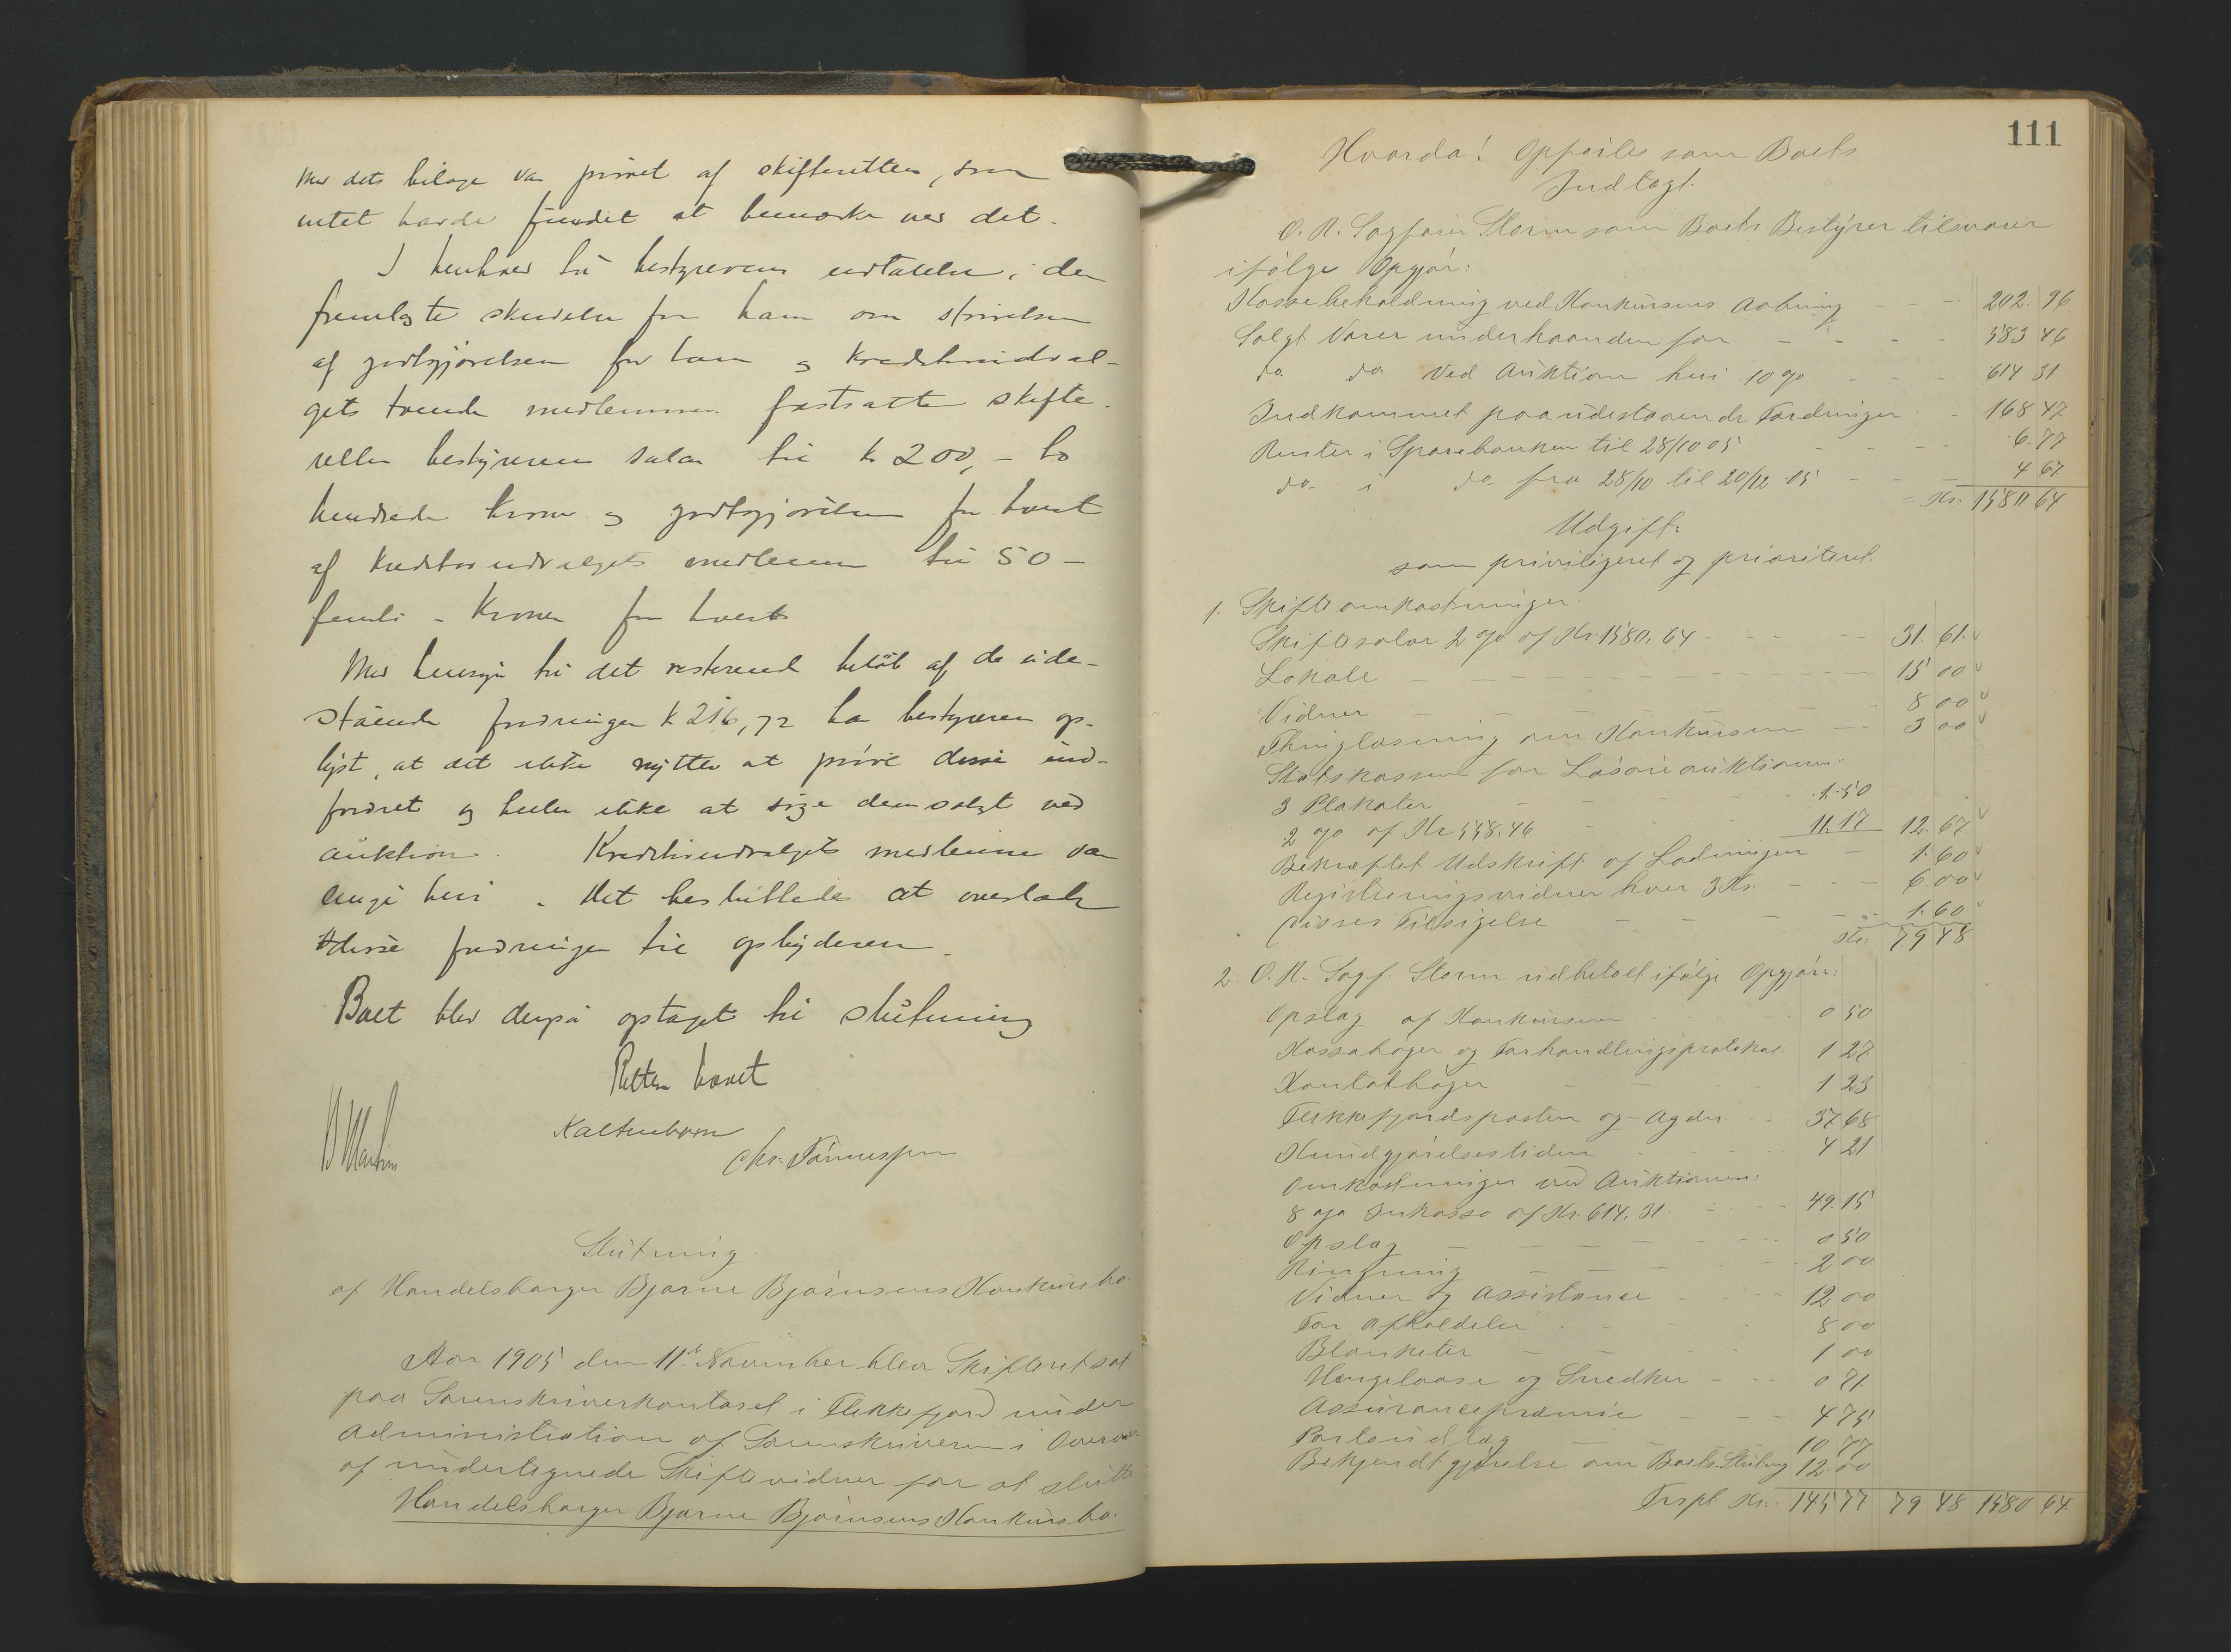 med dets bilage var prøvet af skifteretten, som
intet havde fundet at bemærke ved det.
I henhold til bestyrerens udtalelse i den
fremlagte skrivelse fra ham om størrelsen
af godtgjørelsen for ham og kreditorudval-
gets tvende medlemmer fastsatte skifte-
retten bestyreren salær til kr 200,- to
hundrede kroner og godtgjørelsen for hvert
af kreditorudvalgets medlemmer til 50 -
femti - Kroner for hvert
Med hensyn til det resterende beløb af de ude-
stående fordringer k 216,72 har bestyreren op-
lyst, at det ikke nytter at prøve disse ind-
fordret og heller ikke at søge dem solgt ved
auktion. Kreditorudvalgets medlemmer var
enige heri. Det besluttedes at overlade
disse fordringer til opbyderen.
Boet blev derpå optaget til slutning
Retten hævet
Kaltenborn
Chr. Tønnessen
Slutning
af Handelsborger Bjarne Bjørnsens Konkursbo.
Aar 1905 den 11te November blev Skifteret sat
paa Sorenskriverkontoret i Flekkefjord under
Administration af Sorenskriveren i Overvær
af undertegnede Skiftevidner for at slutte
Handelsborger Bjarne Bjørnsens Konkursbo.
111
Hvorda! Opføres som Boets
Indtægt.
O. R. Sagfører Storm som Boets Bestyrer tilsvarer
ifølge Opgjør:
Kassebeholdning ved Konkursens Aabning - - - 202. 96
Solgt Varer underhaanden for - - - - 583 46
do do ved Auktion heri 10 % - - - 614 31
Indkommet paa udestaaende Fordringer - 168 47
Renter i Sparebanken til 28/10 05 - - - 6. 77
do i do fra 28/10 til 20/12 05 - - - 4 67
Kr. 1580 64
Udgift:
som priviligeret og prioriteret.
1. Skifteomkostninger.
Skiftesalær 2 % af Kr 1580,64 - - - 31. 61.
Lokale - - - 15 00
Vidner - - - 8 00
Thinglæsning om Konkursen - - 3 00
Statskassen for Løsøreauktionen:
3 Plakater - - - 1.50
2 % af Kr 558.46 - - - 11.17 12. 67
Bekræftet Udskrift af Ladningen - 1. 60
Registreringsvidner hver 3 Kr. - - - 6 00
Disses Tilsigelse - - - 1. 60
Kr. 79 48
2. O. R. Sagf. Storm udbetalt ifølge Opgjør:
Opslag af Konkursen 0 50
Kassabøger og Forhandlingsprotokol 1 27
Kontobøger - - 1 23
Flekkefjordsposten og Agder - - 37 68
Kundgjørelsestiden - - - 4 21
Omkostninger ved Auktionen:
8 % Inkasso af Kr. 614.31 - - - 49. 15
Opslag - - - 0 50
Ringning - - - 2 00
Vidner og Assistance - - - 12 00
For Afholdelse - - - 8 00
Blanketer - - - 1 00
Hængelaase og Snedker - - - 0 71
Assurancepræmie - - - 4 75
Portoudlæg - - 10 77
Bekjendtgjørelse om Boets Slutning 12. 00
Trspt Kr. 145 77 79 48 1580 64